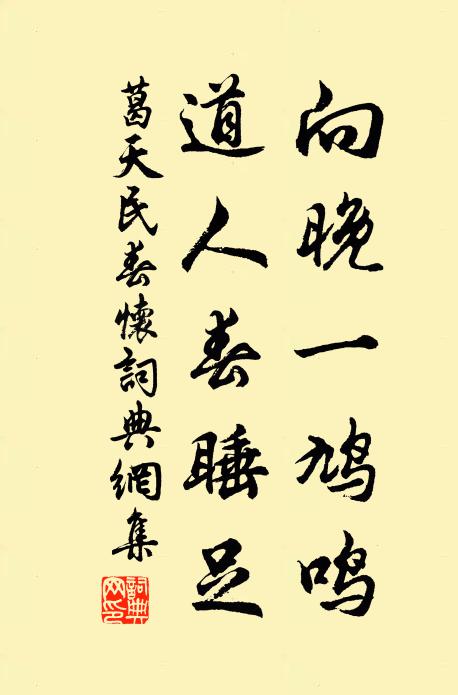 向晚一鸠鸣
道人春睡足
葛天民春懷詞典網集
詞典網印